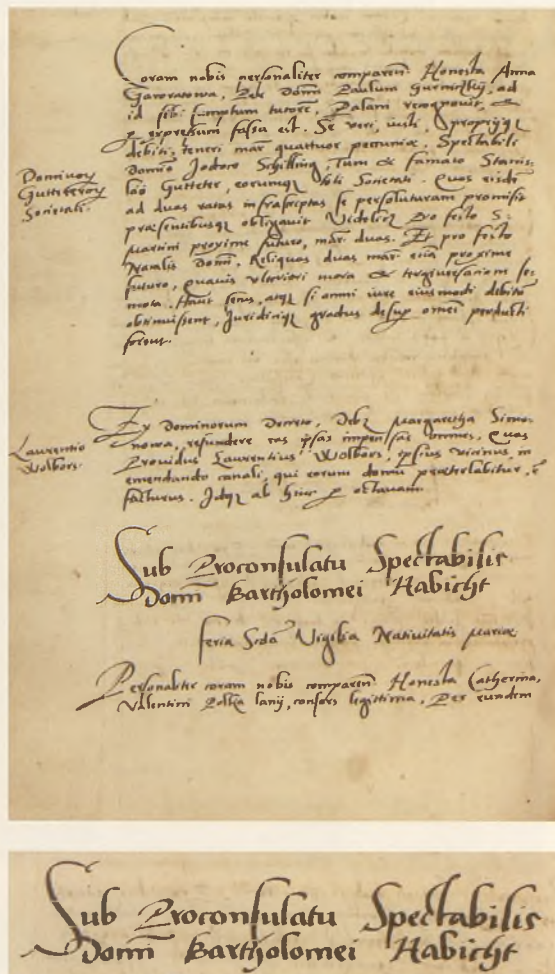 Coram nobis personaliter comparen: Honesta Anna
Gavoratowa, Per Domi Paulum Gurniczkij, ad
id seb: sumptum tutore, Palam recognovit, &
p expressum fassa est. Se veri, iusti, propriiq
debiti, teneri mar quattuor pecuniæ, Spectabili
Domivorz
Gutteterorz
Societati.
Domino Jodoco Schilling, Tum & famato Stanis:
lao Gutteter, eorumq toti Societati. Quas eisde
ad duas ratas infrascriptas se persoluturam promisit
præsentibusq obligavit Videlicz Pro festo S:
Martini proxime futuro, mar: duas. Et pro festo
Natalis Domi, Reliquas duas mar etia proxime
futuro, quavis ulteriori mora & tergiversatiom se:
mota. Haut secus, atq si omni iure eiusmodi debitu
obtinuissent, Juridiciiq gradus desup omes perducti
forent.
Ex Dominorum Decreto, Debz Margaretha Simo:
nowa, refundere eas ipsas impensas omnes, Quas
Laurentio
Wolbors.
Providus Laurentius Wolbors, ipsius vicinus, in
emendando canali, qui eorum domu præterlabitur, e
facturus. Idq ab hinc p octavam.
Sub Proconsulatu Spectabilis
Domi Bartholomei Habicht
Feria Scda Vigilia Nativitatis Mariæ
Personaliter coram nobis comparen: Honesta Catherina,
Valentini Polka lanij, consors legittima, Per eundem
Sub Proconsulatu Spectabilis
Domi Bartholomei Habicht